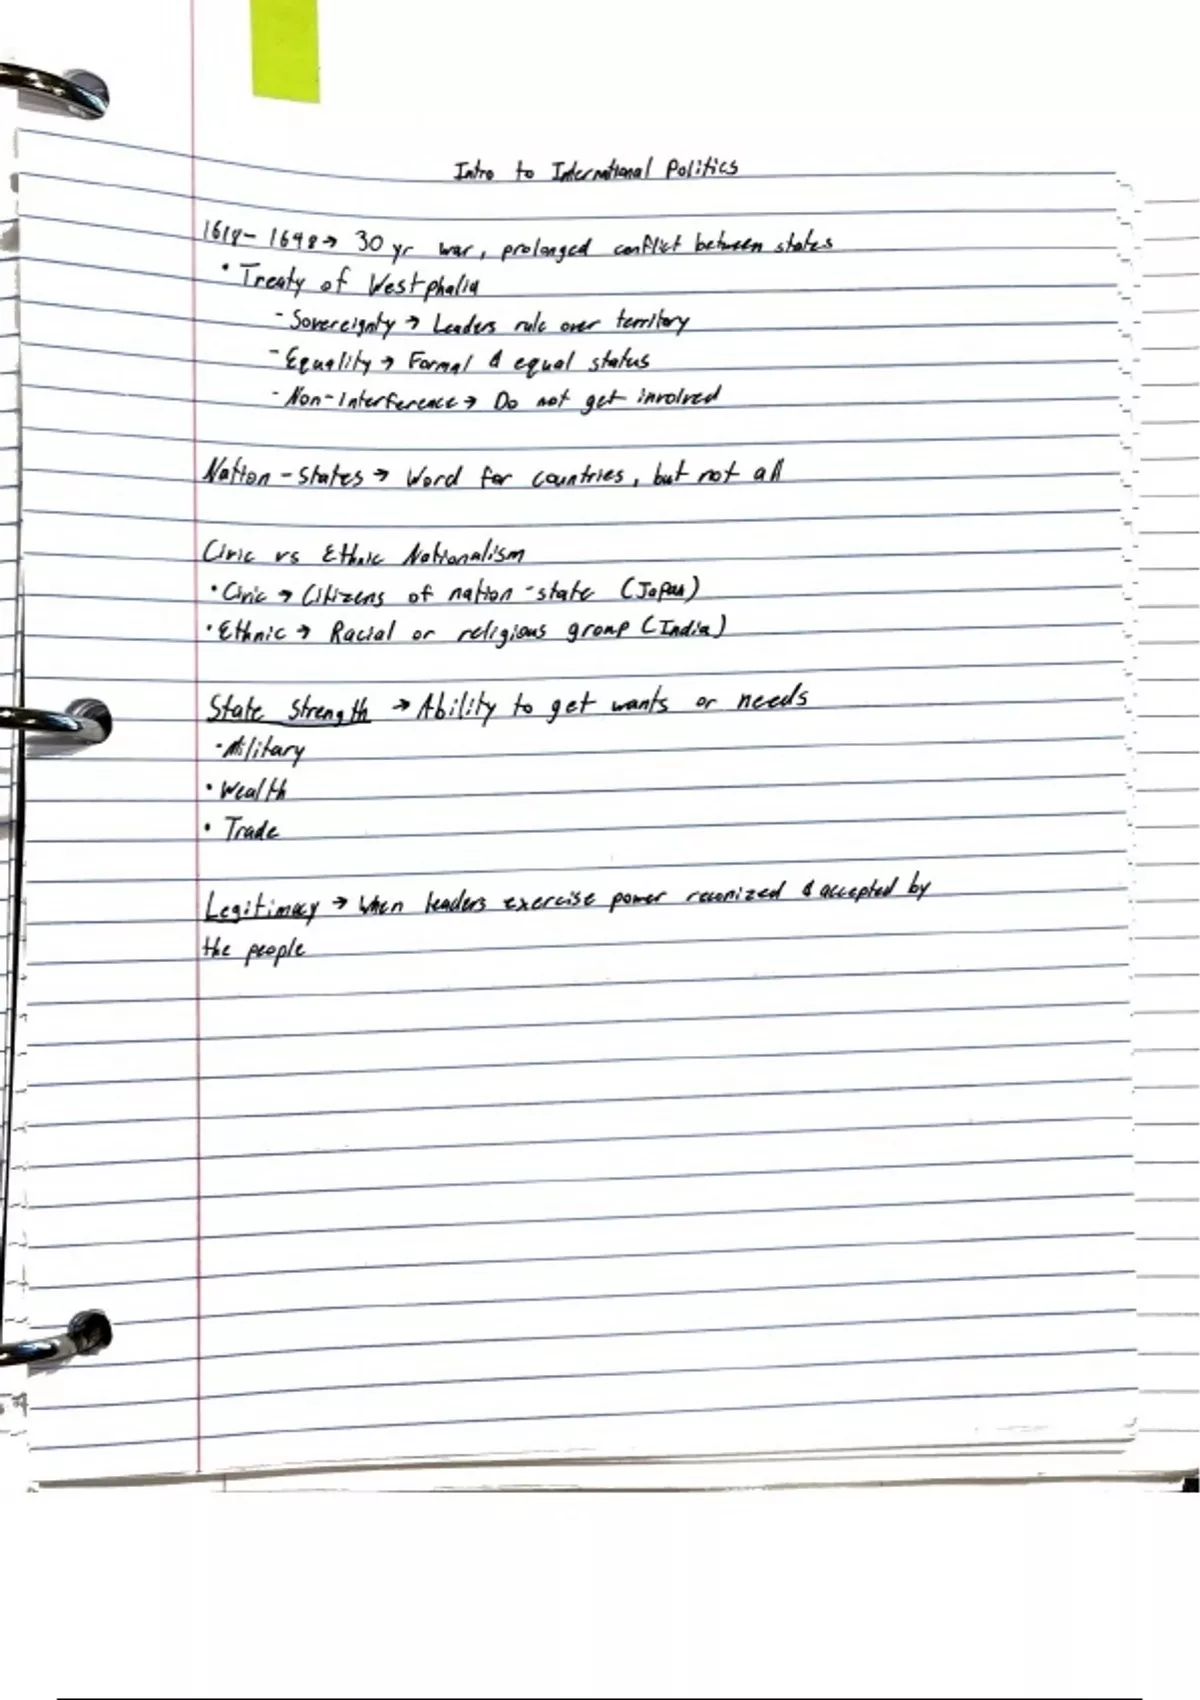 Intro to International Politics
1618- 1648→ 30 yr war, prolonged conflict between states
• Treaty of Westphalia
- Sovereignty → Leaders rule over territory
- Equality → Formal & equal status
- Non-Interference → Do not get involved
Nation-states → Word for countries, but not all
Civic vs Ethnic Nationalism
• Civic → Citizens of nation-state (Japan)
• Ethnic → Racial or religious group (India)
State Strength → Ability to get wants or needs
• Military
• Wealth
• Trade
Legitimacy → When leaders exercise power reconized & accepted by
the people